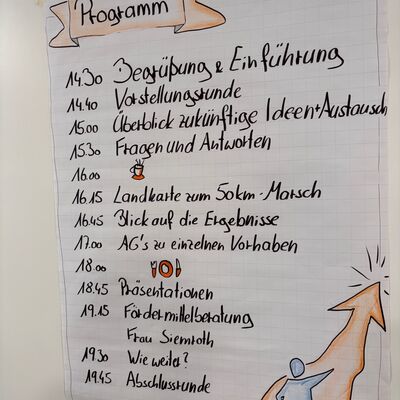 Programm
14.30 Begrüßung & Einführung
14.40 Vorstellungsrunde
15.00 Überblick zukünftige Ideen+Austausch
15.30 Fragen und Antworten
16.00
16.15 Landkarte zum 50km-Marsch
16.45 Blick auf die Ergebnisse
17.00 AG's zu einzelnen Vorhaben
18.00
18.45 Präsentationen
19.15 Fördermittelberatung
Frau Siemroth
19.30 Wie weiter?
19.45 Abschlussrunde